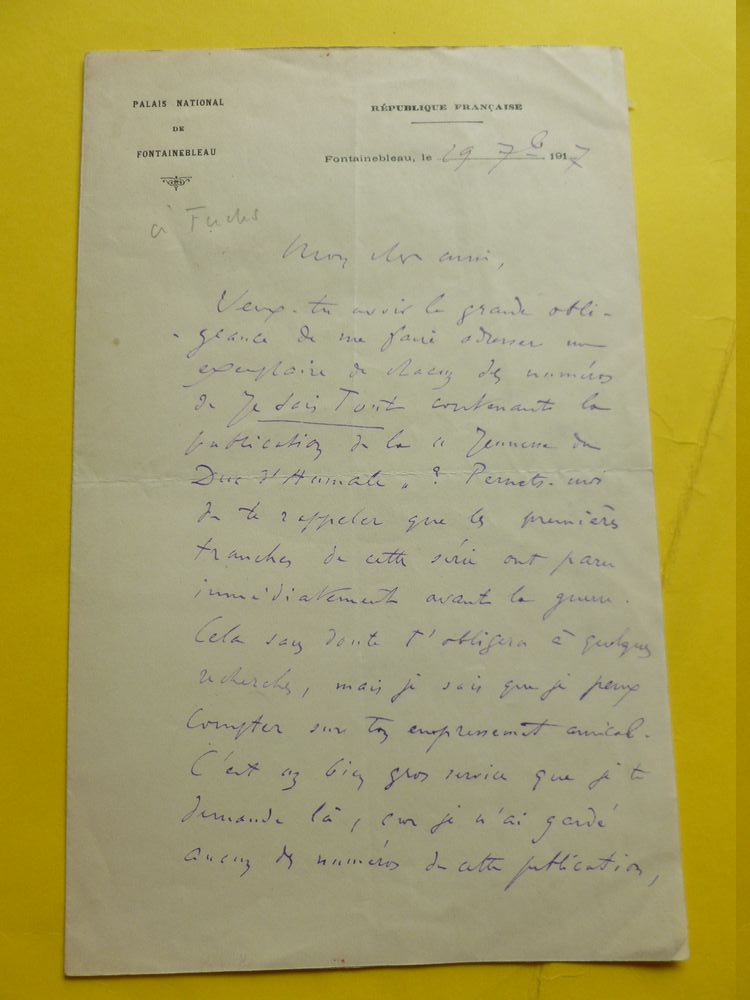 PALAIS NATIONAL
DE
FONTAINEBLEAU
RÉPUBLIQUE FRANÇAISE
Fontainebleau, le 19 7b 1917
à Fuchs
Mon cher ami,
Veux-tu avoir la grande obli-
geance de me faire adresser un
exemplaire de chacun des numéros
de Je sais Tout contenant la
publication de la "Jeunesse du
Duc d'Aumale" ? Permets-moi
de te rappeler que les premières
tranches de cette série ont paru
immédiatement avant la guerre.
Cela sans doute t'obligera à quelques
recherches, mais je sais que je peux
compter sur ton empressement amical.
C'est un bien gros service que je te
demande là, car je n'ai gardé
aucun des numéros de cette publication,